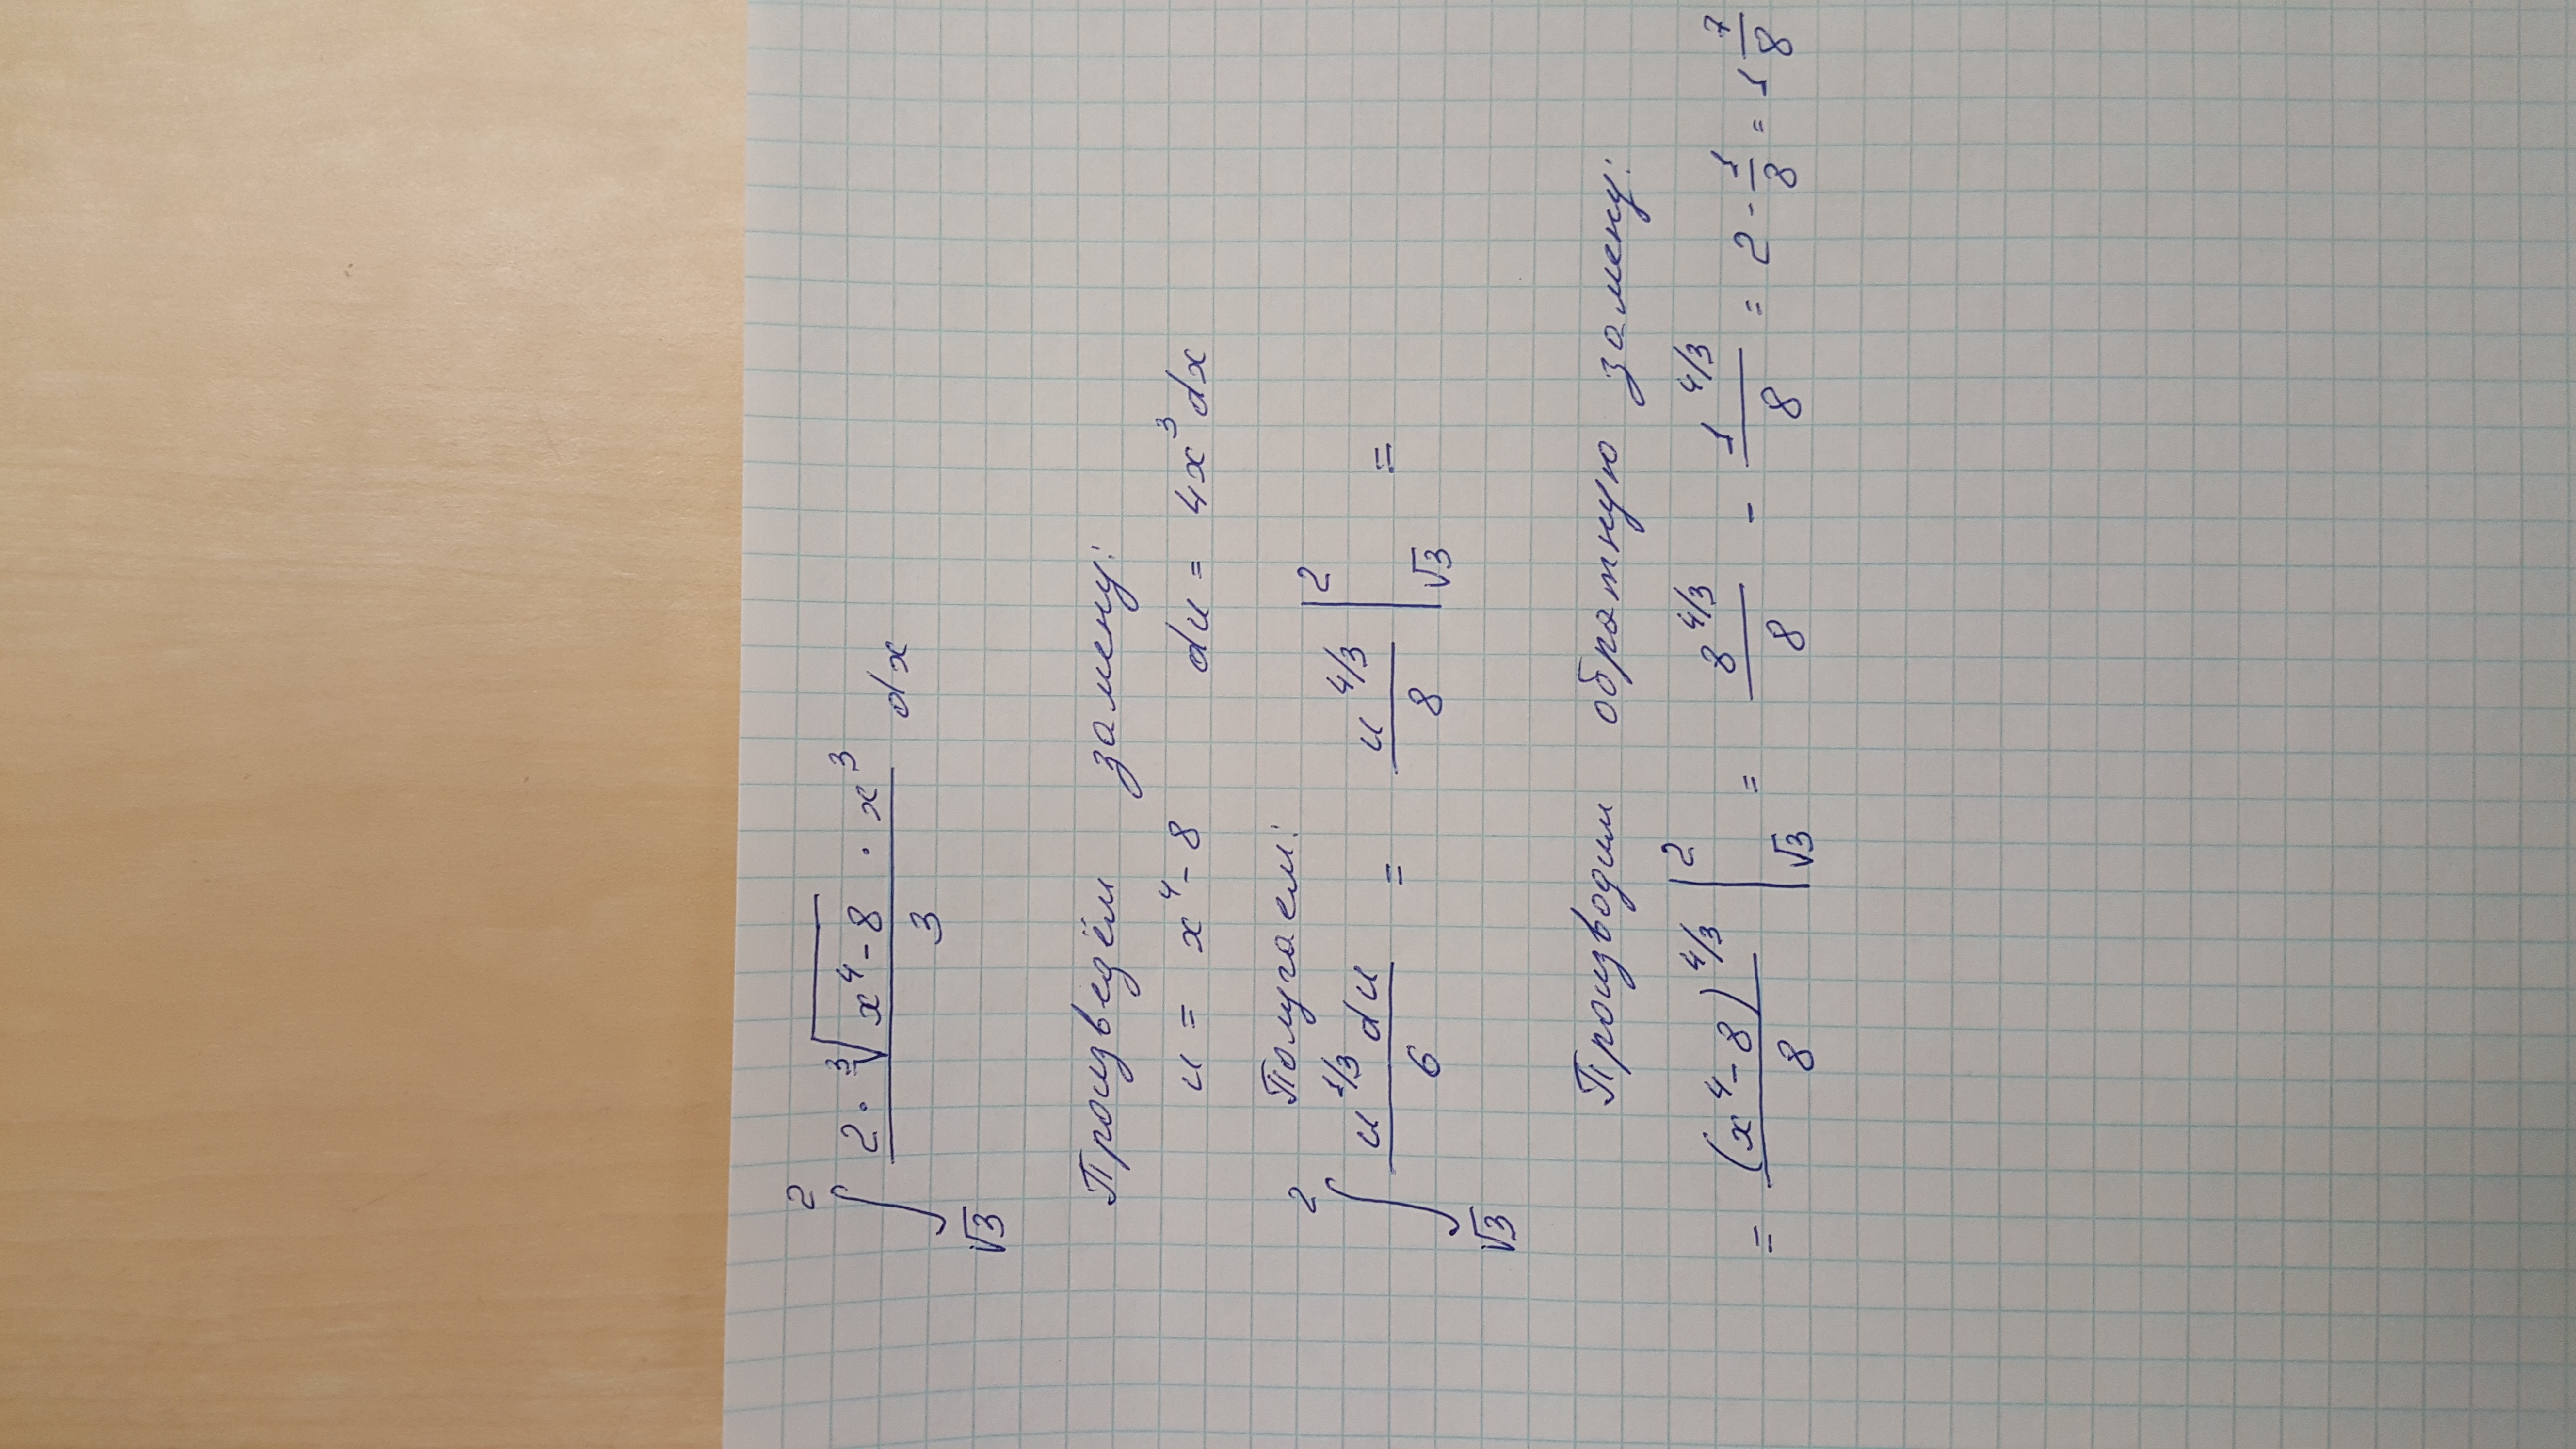 ∫_{√3}^{2} (2·∛(x⁴-8) · x³)/3 dx
Произведём замену:
u = x⁴-8 du = 4x³dx
Получаем:
∫_{√3}^{2} (u^{1/3} du)/6 = u^{4/3}/8 |_{√3}^{2} =
Производим обратную замену:
= (x⁴-8)^{4/3}/8 |_{√3}^{2} = 8^{4/3}/8 - 1^{4/3}/8 = 2 - 1/8 = 1 7/8